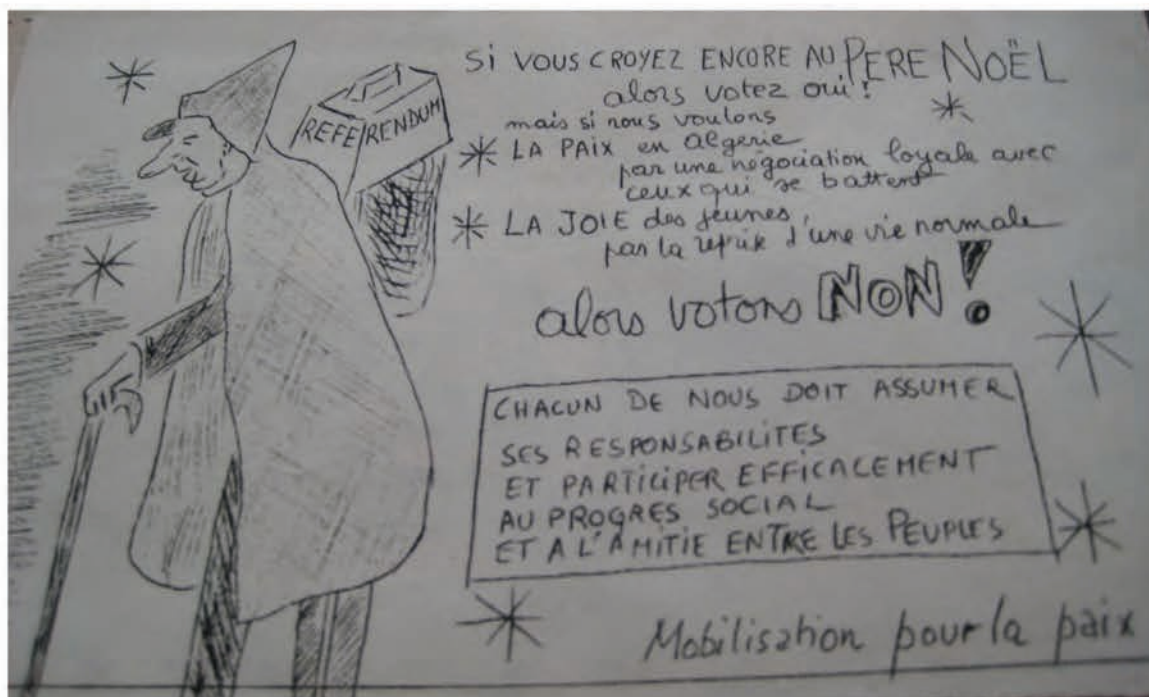 REFERENDUM
SI VOUS CROYEZ ENCORE AU PERE NOËL
alors votez oui!
mais si nous voulons
LA PAIX en Algerie
par une négociation loyale avec
ceux qui se battent
LA JOIE des jeunes,
par la reprise d'une vie normale
alors votons NON!
CHACUN DE NOUS DOIT ASSUMER
SES RESPONSABILITES
ET PARTICIPER EFFICACEMENT
AU PROGRES SOCIAL
ET A L'AMITIE ENTRE LES PEUPLES
Mobilisation pour la paix